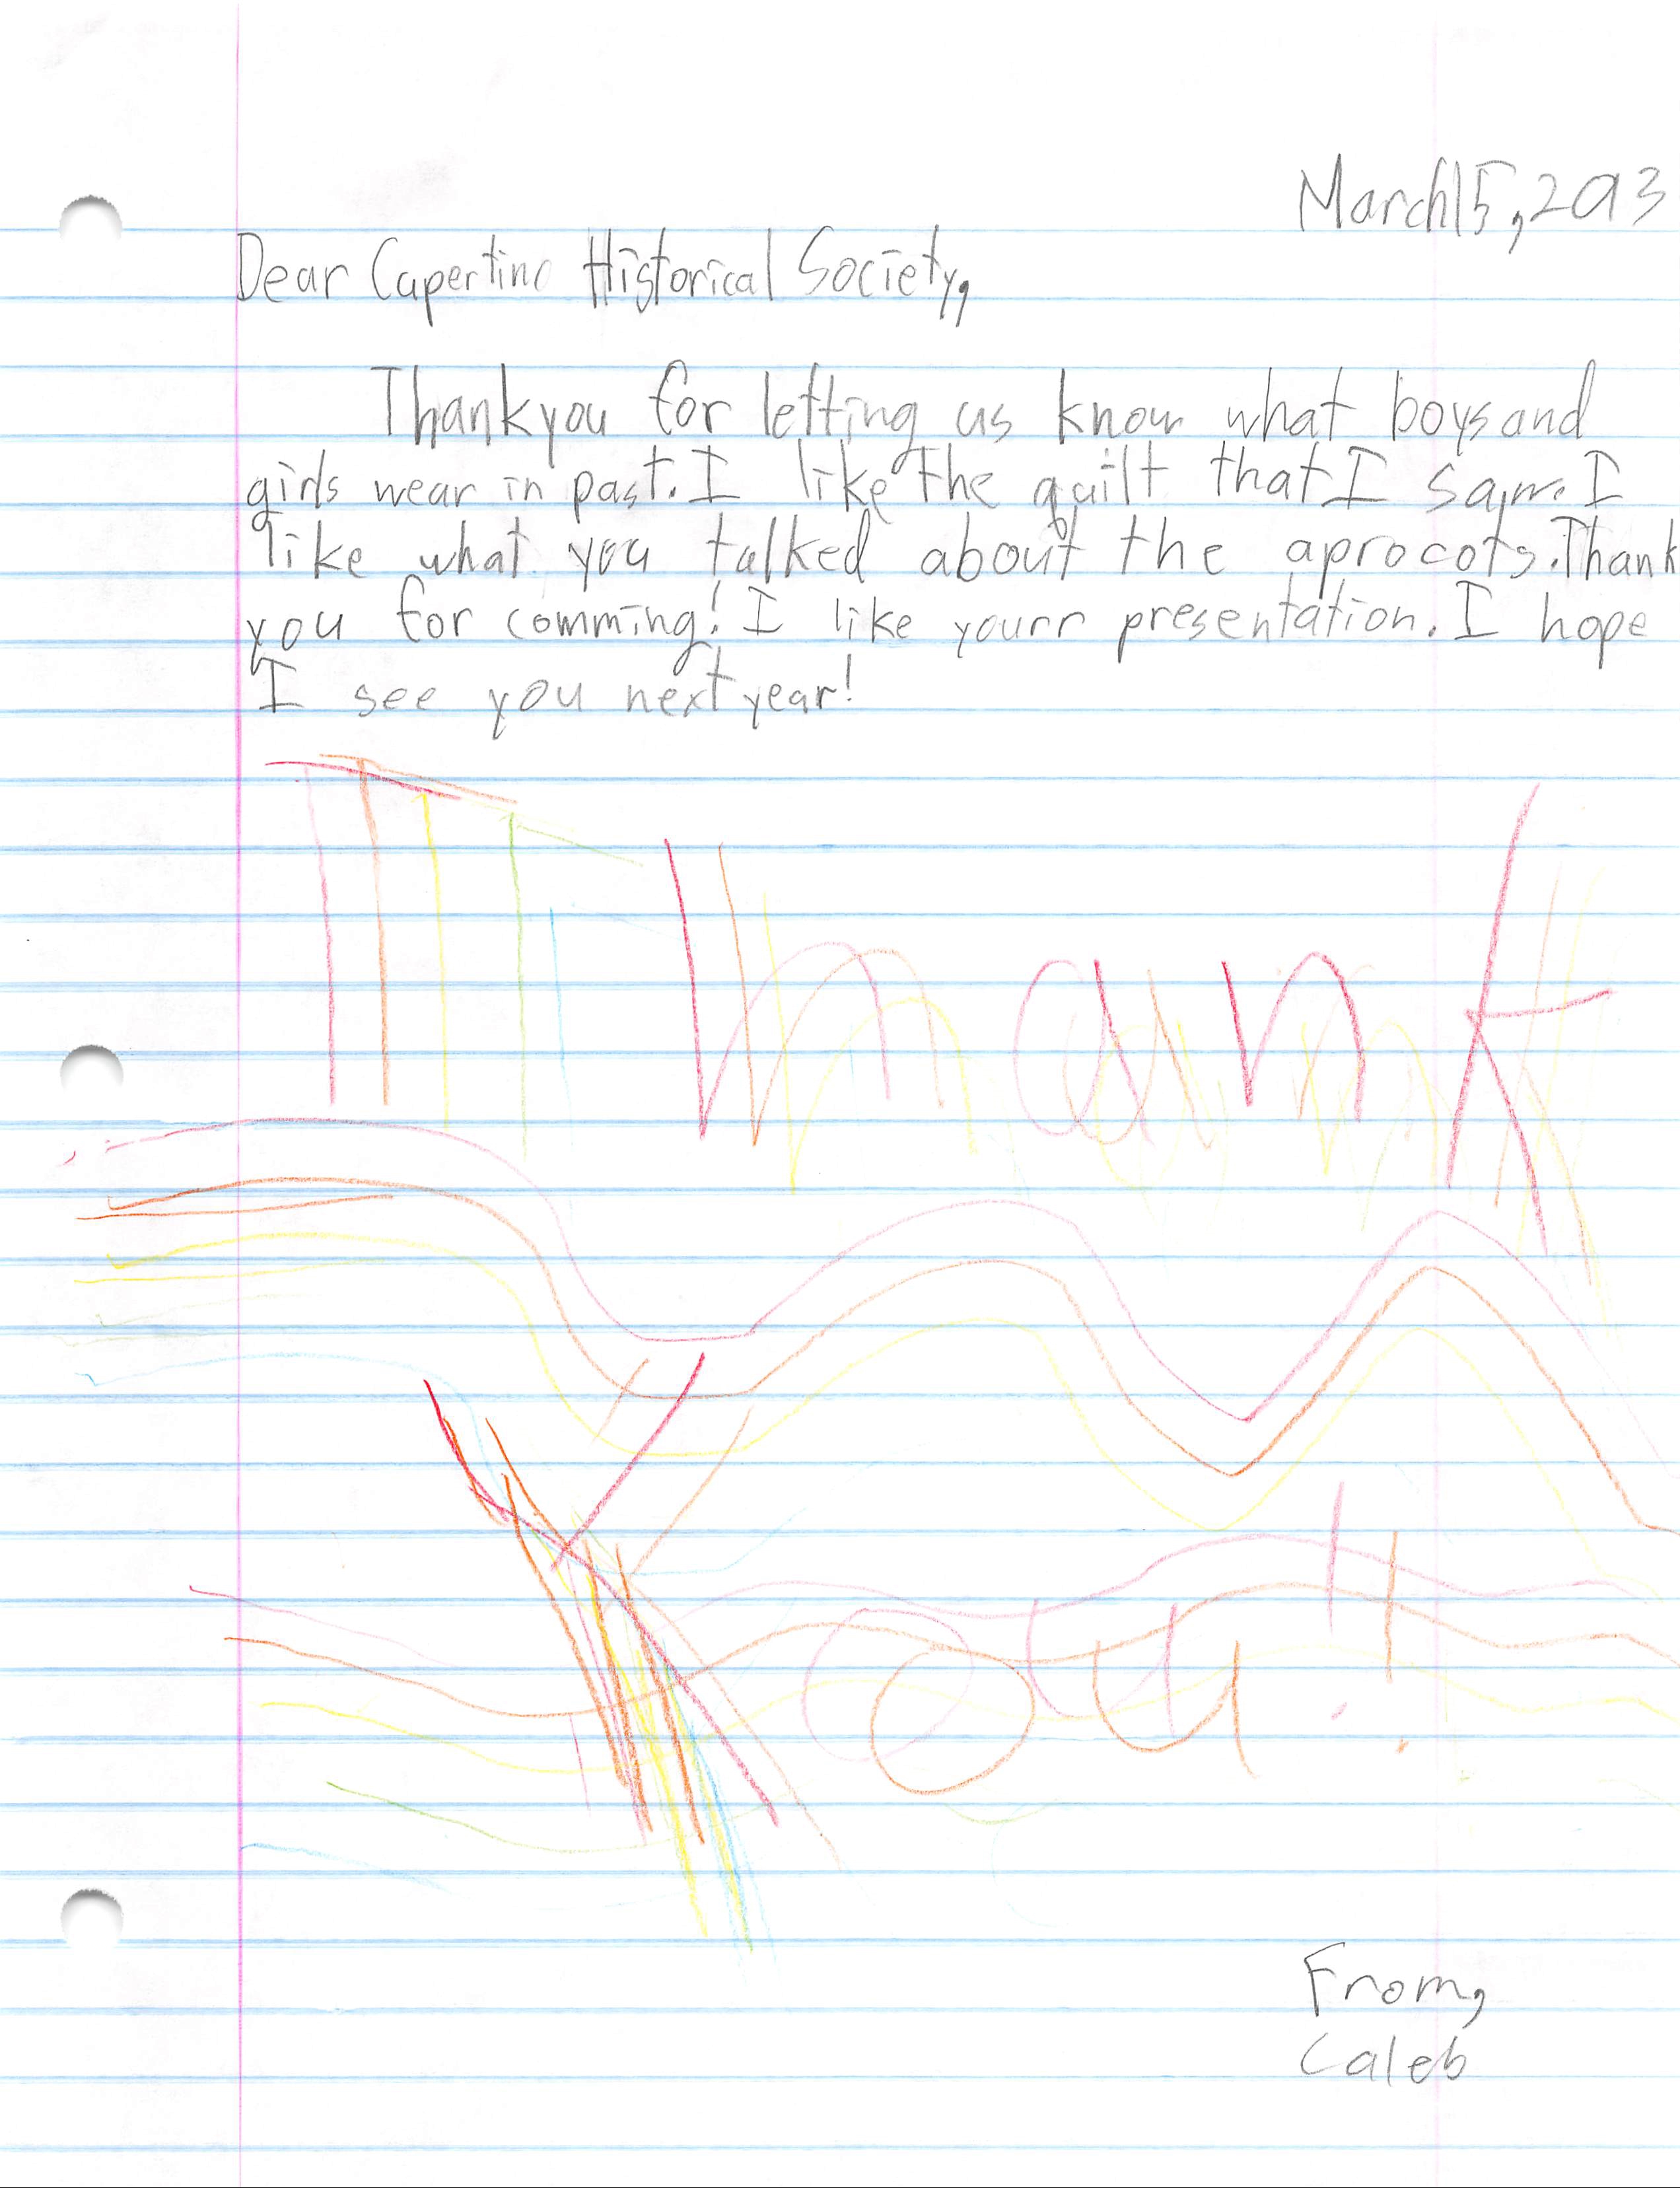 March 15, 2013
Dear Capertino Historical Society,
Thank you for letting us know what boys and
girls wear in past. I like the quilt that I saw. I
like what you talked about the aprocots. Thank
you for comming! I like yourr presentation. I hope
I see you next year!
Thank
You!
From,
Caleb